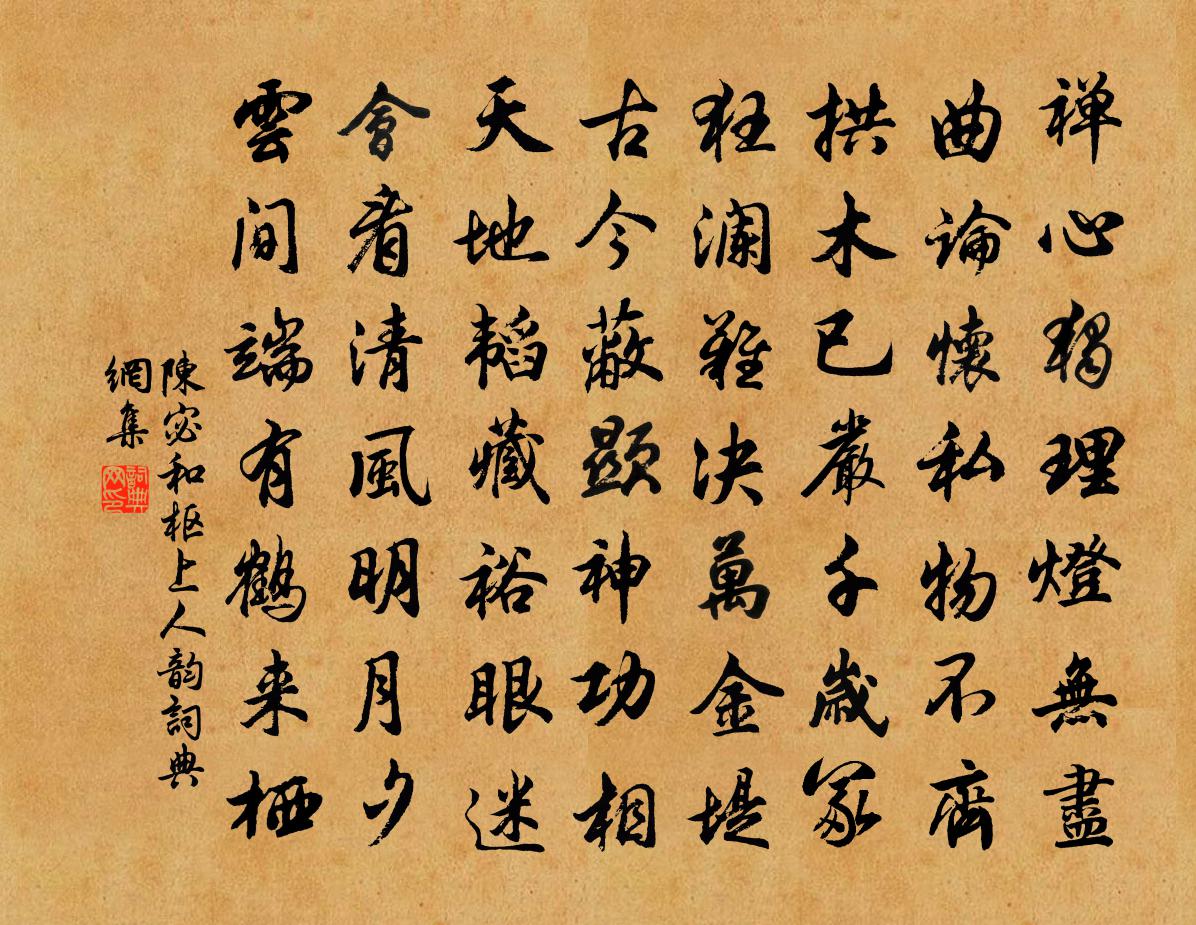 禅心獨理燈無盡
曲論懷私物不齊
拱木已嚴千歲冢
狂瀾難決萬金堤
古今蔽顯神功相
天地韬藏裕眼迷
會看清風明月夕
雲间端有鹤来栖
陳宓和枢上人韵詞典
網集
詞典
网印